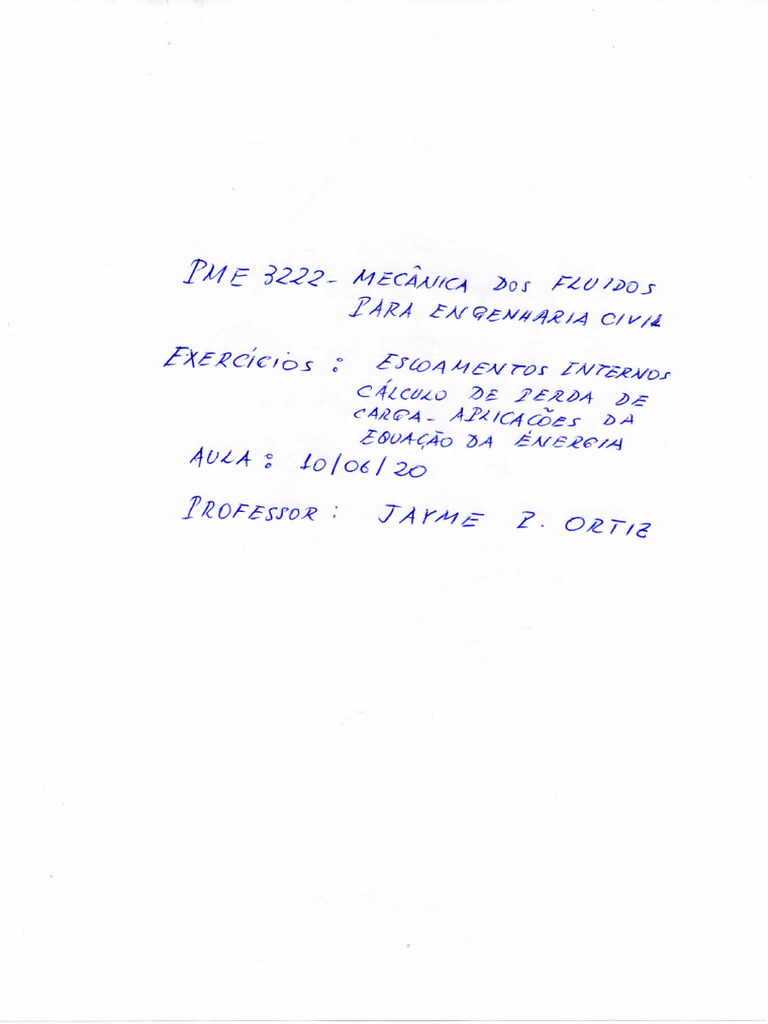 PME 3222 - MECÂNICA DOS FLUIDOS
PARA ENGENHARIA CIVIL
EXERCÍCIOS : ESCOAMENTOS INTERNOS
CÁLCULO DE PERDA DE
CARGA - APLICAÇÕES DA
EQUAÇÃO DA ENERGIA
AULA : 10/06/20
PROFESSOR : JAYME P. ORTIZ